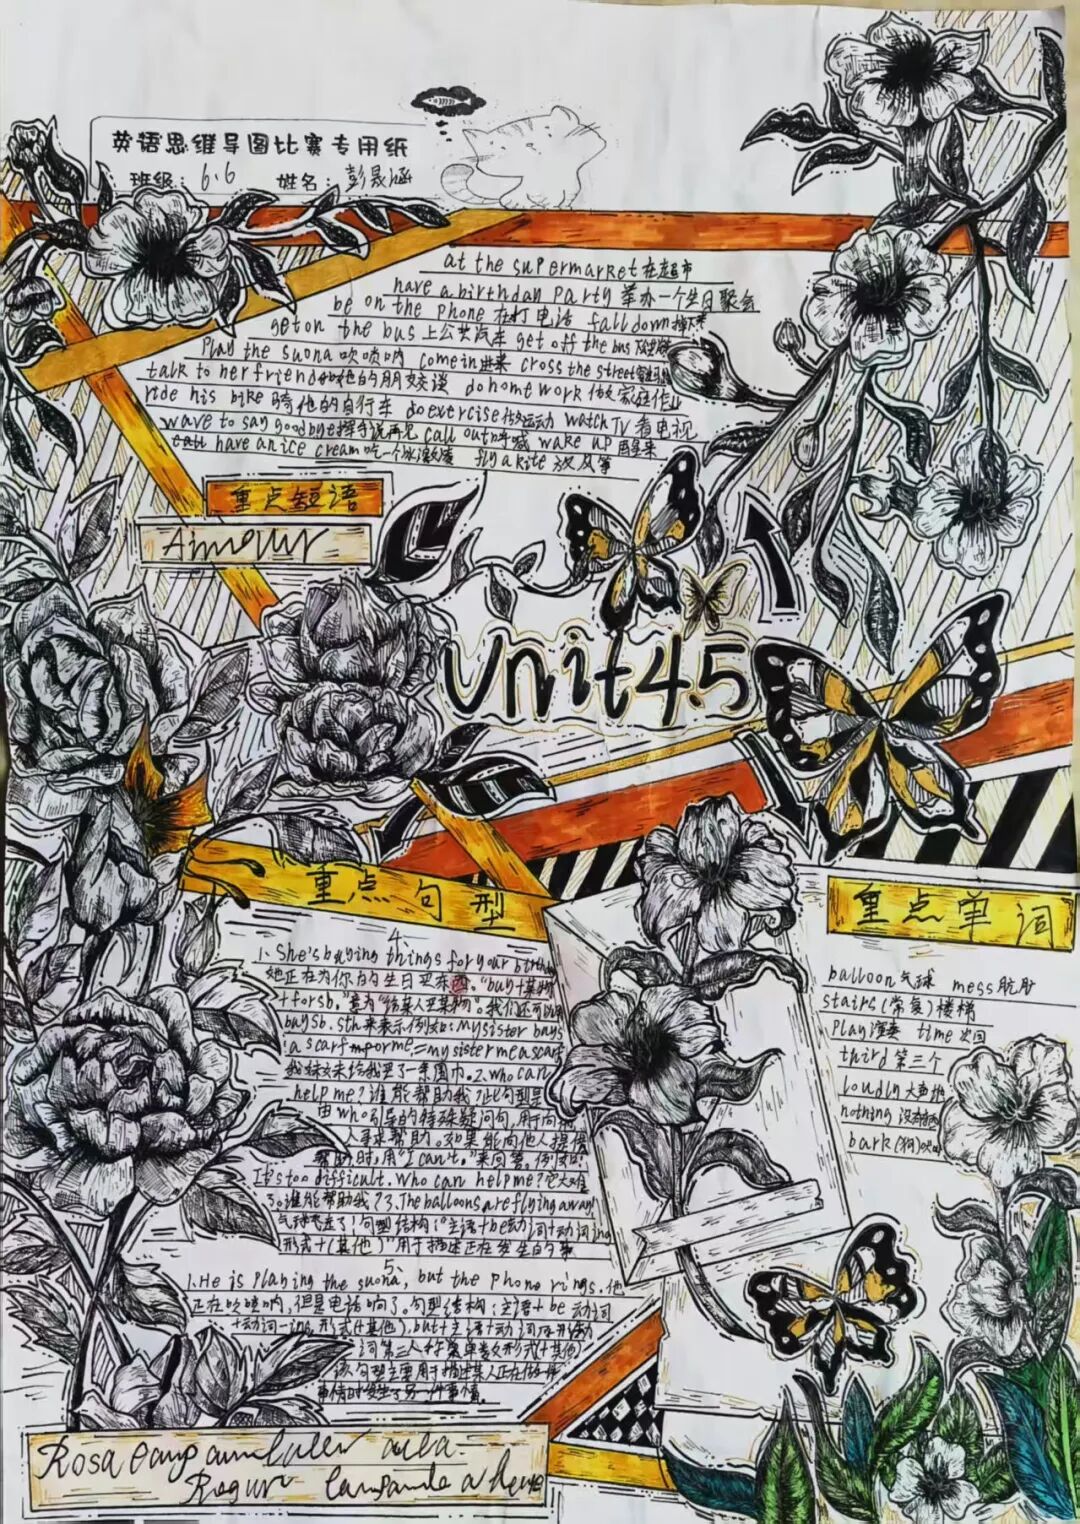 英语思维导图比赛专用纸
班级：6.6 姓名：彭晟涵
at the supermarket 在超市
have a birthday party 举办一个生日聚会
be on the phone 在打电话 fall down 掉下来
get on the bus 上公共汽车 get off the bus
Play the suona 吹唢呐 come in 进来 cross the street
talk to her friend 的朋友交谈 do homework 做家庭作业
ride his bike 骑他的自行车 do exercise 做运动 watch TV 看电视
wave to say goodbye 挥手说再见 call out 呼喊 wake up 醒来
have an ice cream 吃一个冰淇淋 fly a kite 放风筝
重点短语
Amour
Unit4.5
重点句型
4、
1. She's buying things for your birthday
她正在为你的生日买东西。"buy+某物
+for sb."意为"给某人买某物"。我们还可以用
buy sb. sth 来表示.例如：My sister buys
a scarf for me.=my sister me a scarf
我妹妹给我买了一条围巾。2.Who can
help me?谁能帮助我？此句型是
由who引导的特殊疑问句，用于向别
人寻求帮助。如果不能向他人提供
帮助时，用"I can't."来回答。例如：
It's too difficult. Who can help me?它太难
了。谁能帮助我？3.The balloons are flying away!
气球飞走了！句型结构："主语+be动词+动词ing
形式+(其他)"用于描述正在发生的事
5、
1.He is playing the suona, but the phone rings.他
正在吹唢呐，但是电话响了。句型结构：主语+be 动词
+动词-ing形式(+其他),but+主语+动词
词第三人称单数形式(+其他)
该句型主要用于描述某人正在做某
事情时发生了另一件事情。
重点单词
balloon 气球 mess 肮脏
stairs (常复)楼梯
play 演奏 time 次 回
third 第三个
loudly 大声地
nothing 没有
bark (狗)吠叫
Rosa